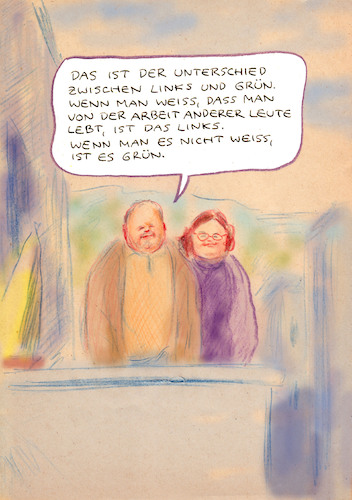 DAS IST DER UNTERSCHIED
ZWISCHEN LINKS UND GRÜN.
WENN MAN WEISS, DASS MAN
VON DER ARBEIT ANDERER LEUTE
LEBT, IST DAS LINKS.
WENN MAN ES NICHT WEISS,
IST ES GRÜN.